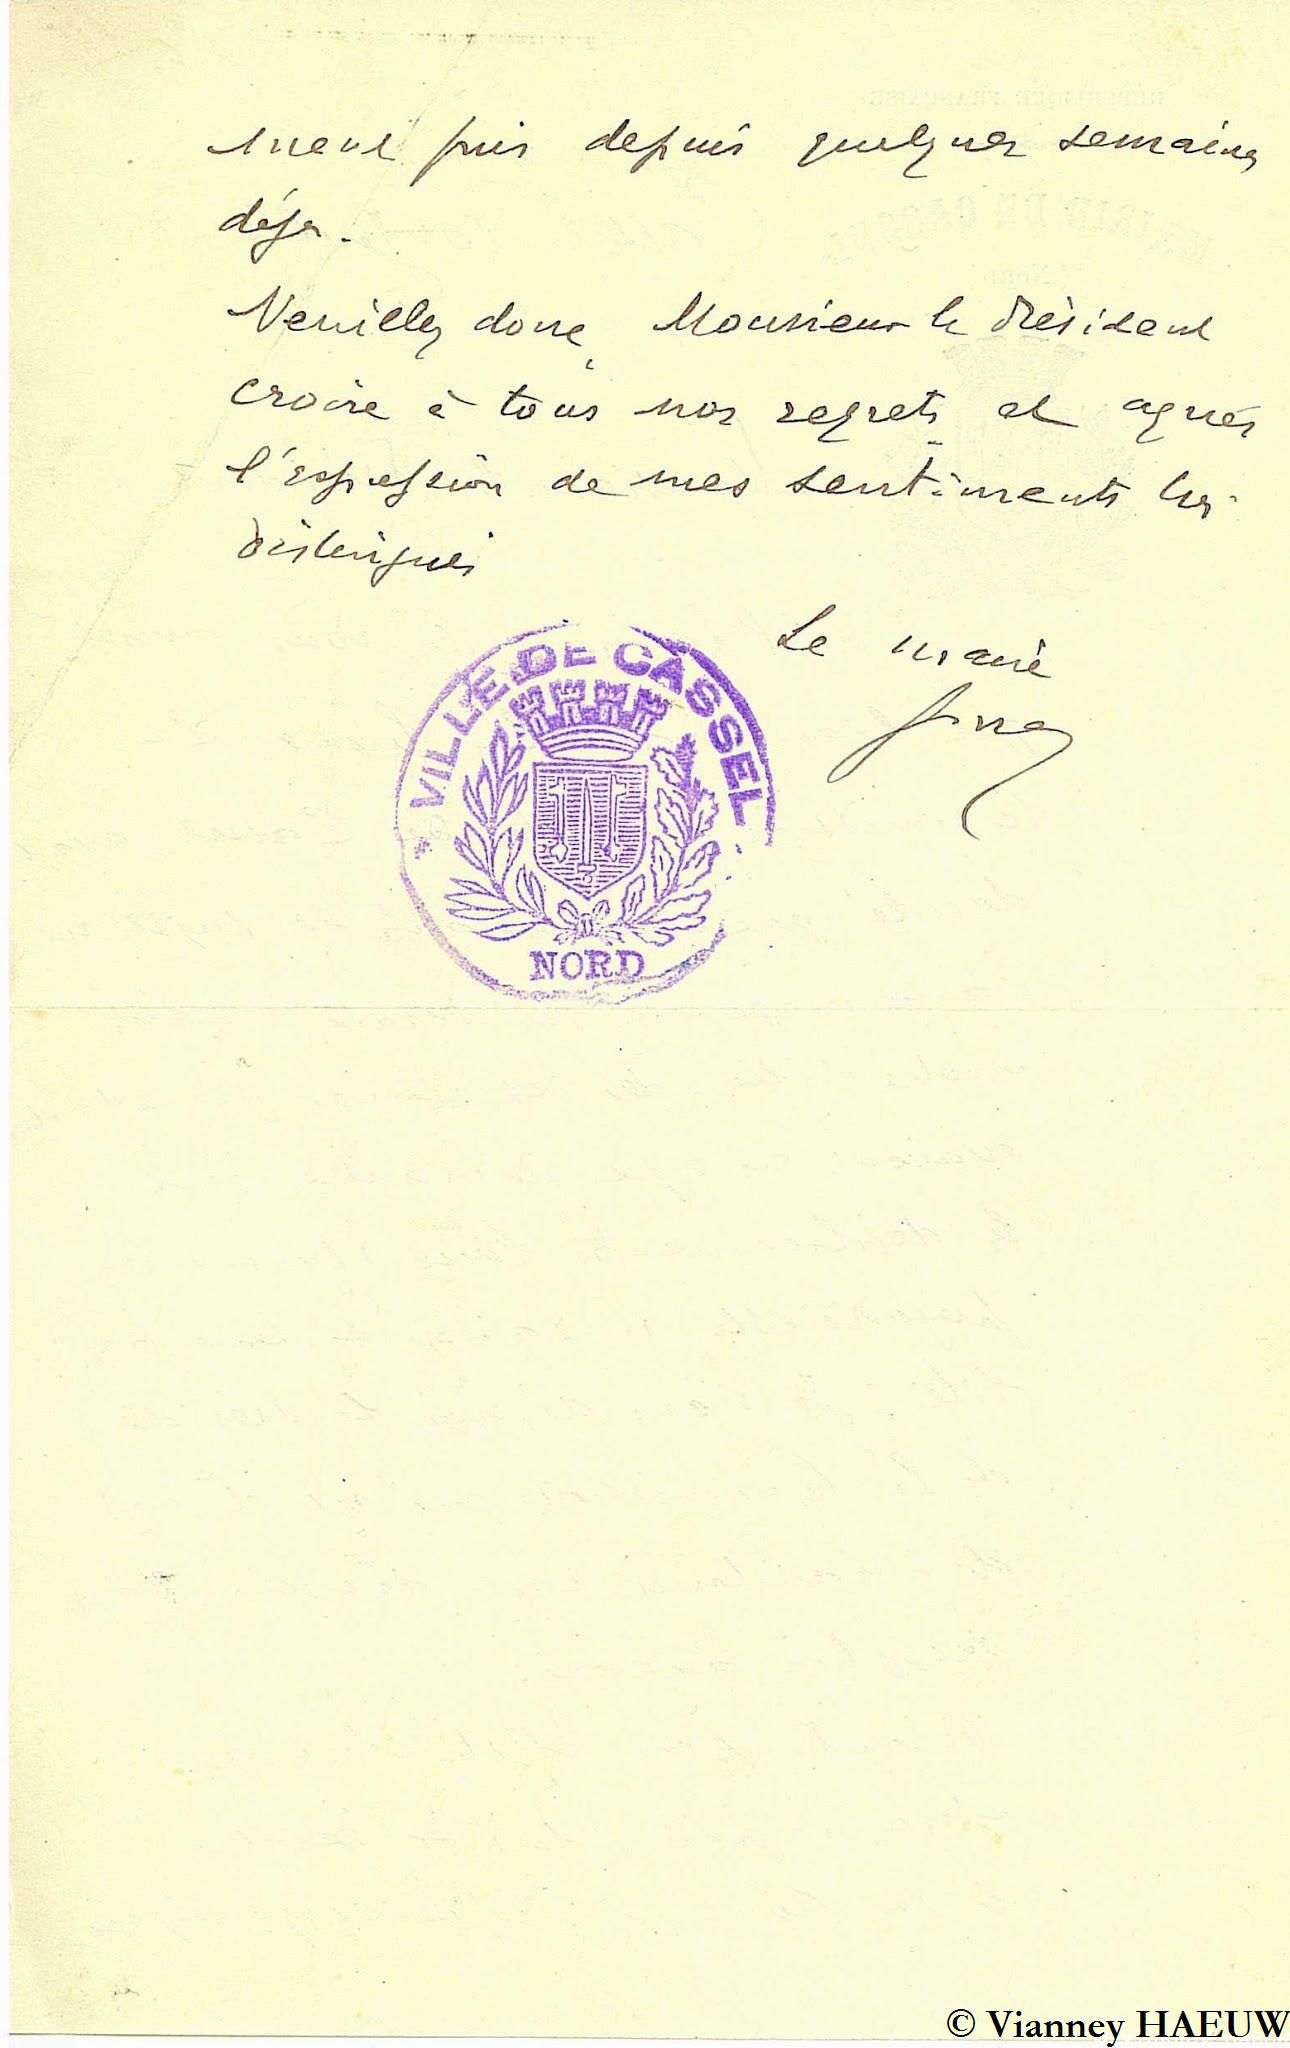 ment pris depuis quelques semaines
déja.
Veuillez donc, Monsieur le Président
croire à tous nos regrets et agréer
l'expression de mes sentiments les
distingués
Le maire
VILLE DE CASSEL
NORD
© Vianney HAEUW